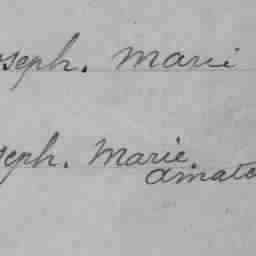 oseph. Marie
seph. Marie
amate